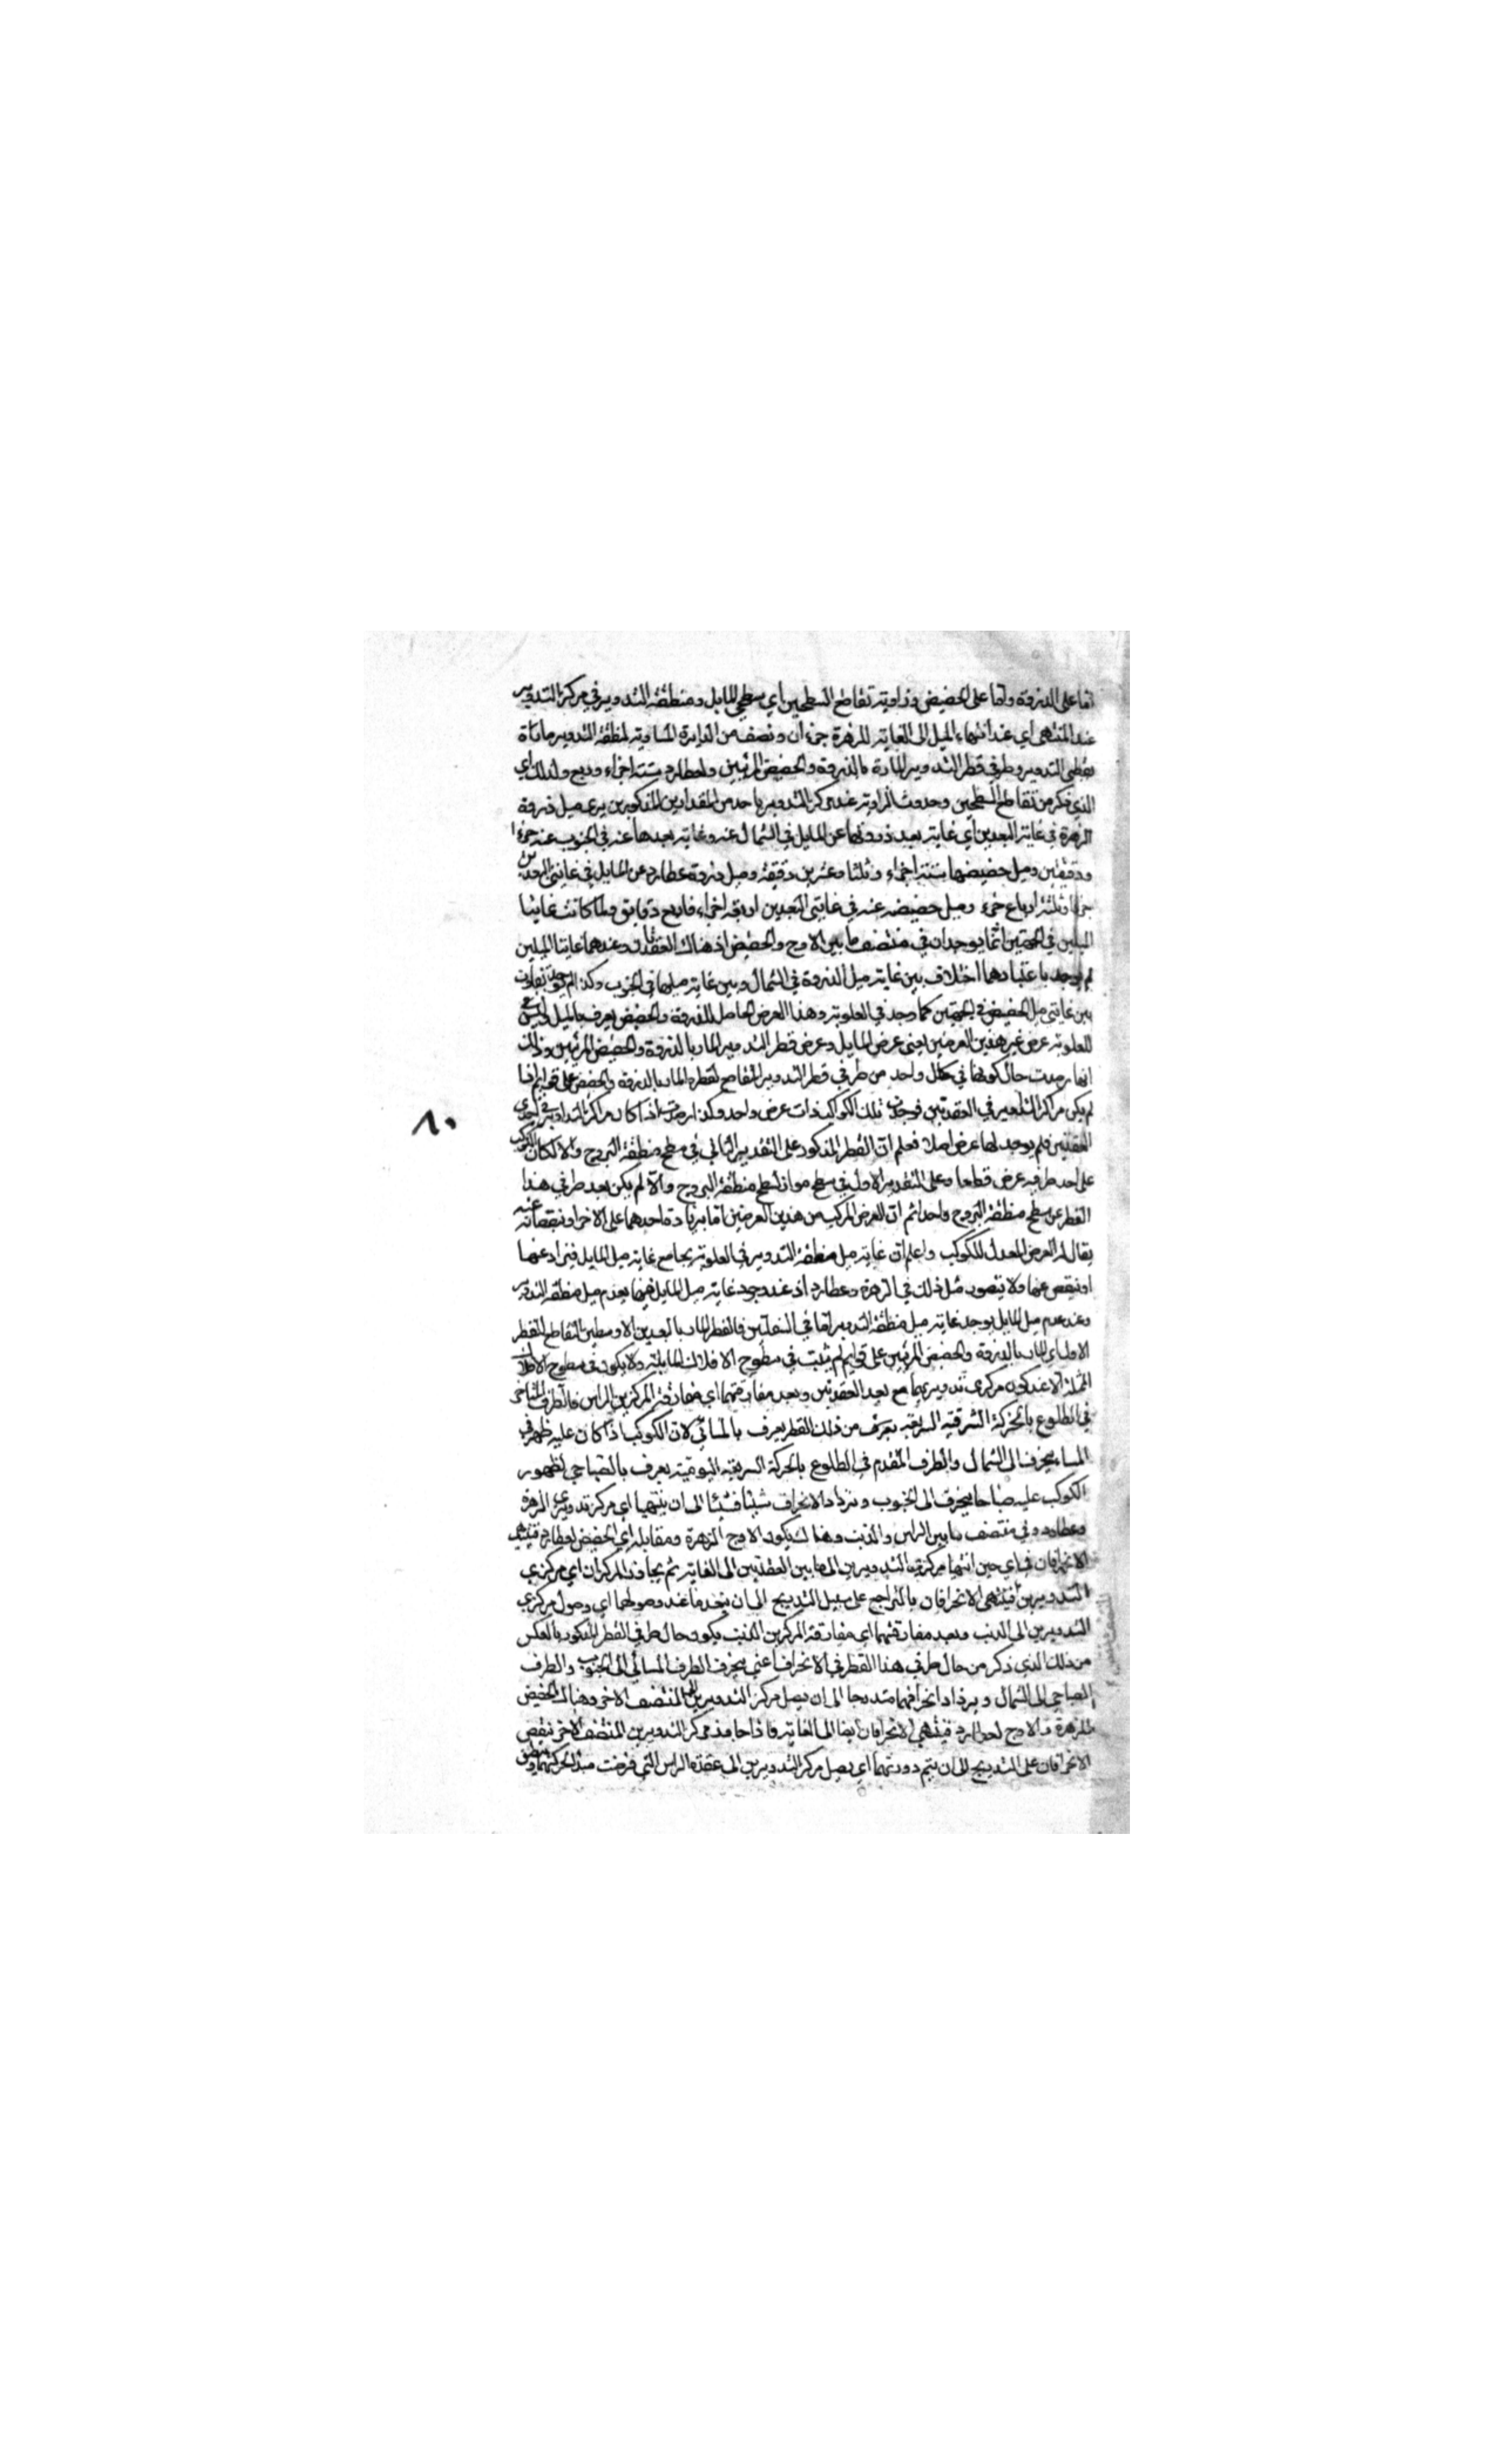 اما على الذروة واما على الحضيض وزاوية تقاطع السطحين اي سطحي المايل ومنطقة التدوير في مركز التدوير
عند المنتهى اي عند انتهاء الميل الى الغاية للزهرة جزءان ونصف من الدايرة المساوية لمنطقة التدوير مارة
بقطبي التدوير وطرفي قطر التدوير المارة بالذروة والحضيض المرئيين ولعطارد ستة اجزاء وربع ولذلك اي
الذي ذكر من تقاطع السطحين وحدوث الزاوية عند مركز التدوير باحد من المقدارين المذكورين يرى ميل ذروة
الزهرة في غاية البعدين اي غاية بعد ذروتها عن المايل في الشمال عنه وغاية بعدها عنه في الجنوب عنه جزءا
ودقيقتين وميل حضيضها ستة اجزاء وثلثا وعشرين دقيقة وميل ذروة عطارد عن المايل في غايتي البعدين
جزءا وثلثة ارباع جزء وميل حضيضه عنه في غايتي البعدين اربعة اجزاء واربع دقايق ولما كانت غايتا
الميلين في الجهتين انما يوجدان في منتصف ما بين الاوج والحضيض اذ هناك العقدتان وعندهما غايتا الميلين
لم يوجد باعتبارهما اختلاف بين غاية ميل الذروة في الشمال وبين غاية ميلها في الجنوب وكذا لم يوجد تفاوت
بين غايتي ميل الحضيض في الجهتين كما وجد في العلوية وهذا العرض الحاصل للذروة والحضيض يعرف بالميل وليس
للعلوية عرض غير هذين العرضين يعني عرض المايل وعرض قطر التدوير المار بالذروة والحضيض المرئيين وذلك
انها رصدت حال كونها في كل واحد من طرفي قطر التدوير المقاطع لقطره المار بالذروة والحضيض على قوايم اذا
لم يكن مراكز التداوير في العقدتين فوجدت تلك الكواكب ذات عرض واحد وكذا رصدت اذا كان مراكز التداوير في احدى
العقدتين فلم يوجد لها عرض اصلا فعلم ان القطر المذكور على التقدير الثاني في سطح منطقة البروج والا لكان للكوكب
على احد طرفيه عرض قطعا وعلى التقدير الاول في سطح مواز لسطح منطقة البروج والا لم يكن بعد طرفي هذا
القطر عن سطح منطقة البروج واحدا ثم ان العرض المركب من هذين العرضين اما بزيادة احدهما على الاخر او نقصانه عنه
يقال له العرض المعدل للكوكب واعلم ان غاية ميل منطقة التدوير في العلوية يجامع غاية ميل المايل فيزاد عنها
او ينقص عنها ولا يتصور مثل ذلك في الزهرة وعطارد اذ عند وجود غاية ميل المايل فيهما يعدم ميل منطقة التدوير
وعند عدم ميل المايل يوجد غاية ميل منطقة التدوير اما في السفليين فالقطر المار بالبعدين الاوسطين المقاطع للقطر
الاول اي المار بالذروة والحضيض المرئيين على قوايم لم يثبت في سطوح الافلاك المايلة ولا يكون في سطوح الافلاك
الممثلة الا عند كون مركزي تدويريهما مع بعد العقدتين وبعد مفارقتهما اي مفارقة المركزين الراس فالطرف المتاخر
في الطلوع بالحركة الشرقية السريعة من ذلك القطر يعرف بالمسائي لان الكوكب اذا كان عليه ظهر في
المساء ينحرف الى الشمال والطرف المتقدم في الطلوع بالحركة السريعة اليومية يعرف بالصباحي لظهور
الكوكب عليه صباحا ينحرف الى الجنوب ويزداد الانحراف شيئا فشيئا الى ان ينتهيا اي مركز تدويري الزهرة
وعطارد وفي منتصف ما بين الراس والذنب وهناك يكون الاوج للزهرة ومقابله اي الحضيض لعطارد فينتهي
الانحرافان في اي حين انتهاء مركزي التدويرين الى ما بين العقدتين الى الغاية ثم يجاوز المركزان اي مركزي
التدويرين فينتهي الانحرافان بالتراجع على سبيل التدريج الى ان ينعدما عند وصولهما اي وصول مركزي
التدويرين الى الذنب وبعد مفارقتهما اي مفارقة المركزين الذنب يكون حال طرفي القطر المذكور بالعكس
من ذلك الذي ذكر من حال طرفي هذا القطر في الانحراف اعني ينحرف الطرف المسائي الى الجنوب والطرف
الصباحي الى الشمال ويزداد انحرافهما متدرجا الى ان يصل مركز التدويرين الى المنتصف الاخر وهناك الحضيض
للزهرة والاوج لعطارد فينتهي الانحرافان ايضا الى الغاية فاذا جاوز مركز التدويرين المنتصف الاخر نقص
الانحرافان على التدريج الى ان يتم دورتهما اي يصل مركز التدويرين الى عقدة الراس التي فرضت مبدا لحركتهما
٨٠